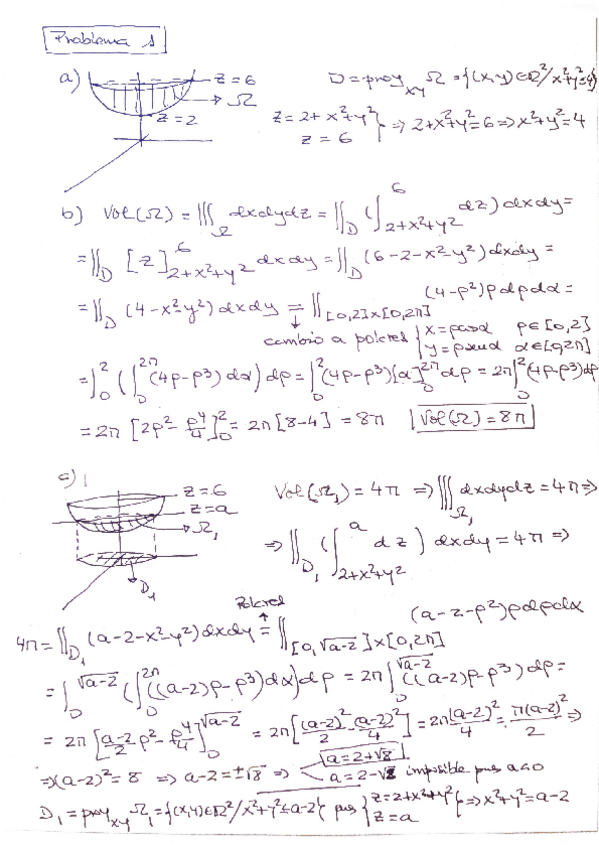 Problema 1
a) z=6
Ω
z=2
D = proy_xy Ω = {(x,y)∈R²/x²+y²≤4}
z=2+x²+y²
z=6 } ⇒ 2+x²+y²=6 ⇒ x²+y²=4
b) Vol(Ω) = ∭_Ω dxdydz = ∬_D (∫_{2+x²+y²}^6 dz) dxdy =
= ∬_D [z]_{2+x²+y²}^6 dxdy = ∬_D (6-2-x²-y²) dxdy =
= ∬_D (4-x²-y²) dxdy = ∬_{[0,2]×[0,2π]} (4-ρ²)ρdρdα =
↓ cambio a polares { x=ρcosα ρ∈[0,2]
y=ρsenα α∈[0,2π]
= ∫_0^2 (∫_0^{2π} (4ρ-ρ³) dα) dρ = ∫_0^2 (4ρ-ρ³)[α]_0^{2π} dρ = 2π ∫_0^2 (4ρ-ρ³)dρ
= 2π [2ρ² - ρ⁴/4]_0^2 = 2π [8-4] = 8π Vol(Ω) = 8π
c) z=6
z=a
Ω₁
D₁
Vol(Ω₁) = 4π ⇒ ∭_{Ω₁} dxdydz = 4π ⇒
⇒ ∬_{D₁} (∫_{2+x²+y²}^a dz) dxdy = 4π ⇒
Polares
4π = ∬_{D₁} (a-2-x²-y²) dxdy = ∬_{[0,√a-2]×[0,2π]} (a-2-ρ²)ρdρdα
= ∫_0^{√a-2} (∫_0^{2π} ((a-2)ρ-ρ³)dα) dρ = 2π ∫_0^{√a-2} ((a-2)ρ-ρ³) dρ =
= 2π [a-2/2 ρ² - ρ⁴/4]_0^{√a-2} = 2π [(a-2)²/2 - (a-2)²/4] = 2π (a-2)²/4 = π(a-2)²/2 ⇒
⇒ (a-2)² = 8 ⇒ a-2 = ±√8 ⇒ a=2+√8
a=2-√8 imposible pues a<0
D₁ = proy_xy Ω₁ = {(x,y)∈R²/x²+y²≤a-2} pues { z=2+x²+y²
z=a } ⇒ x²+y²=a-2